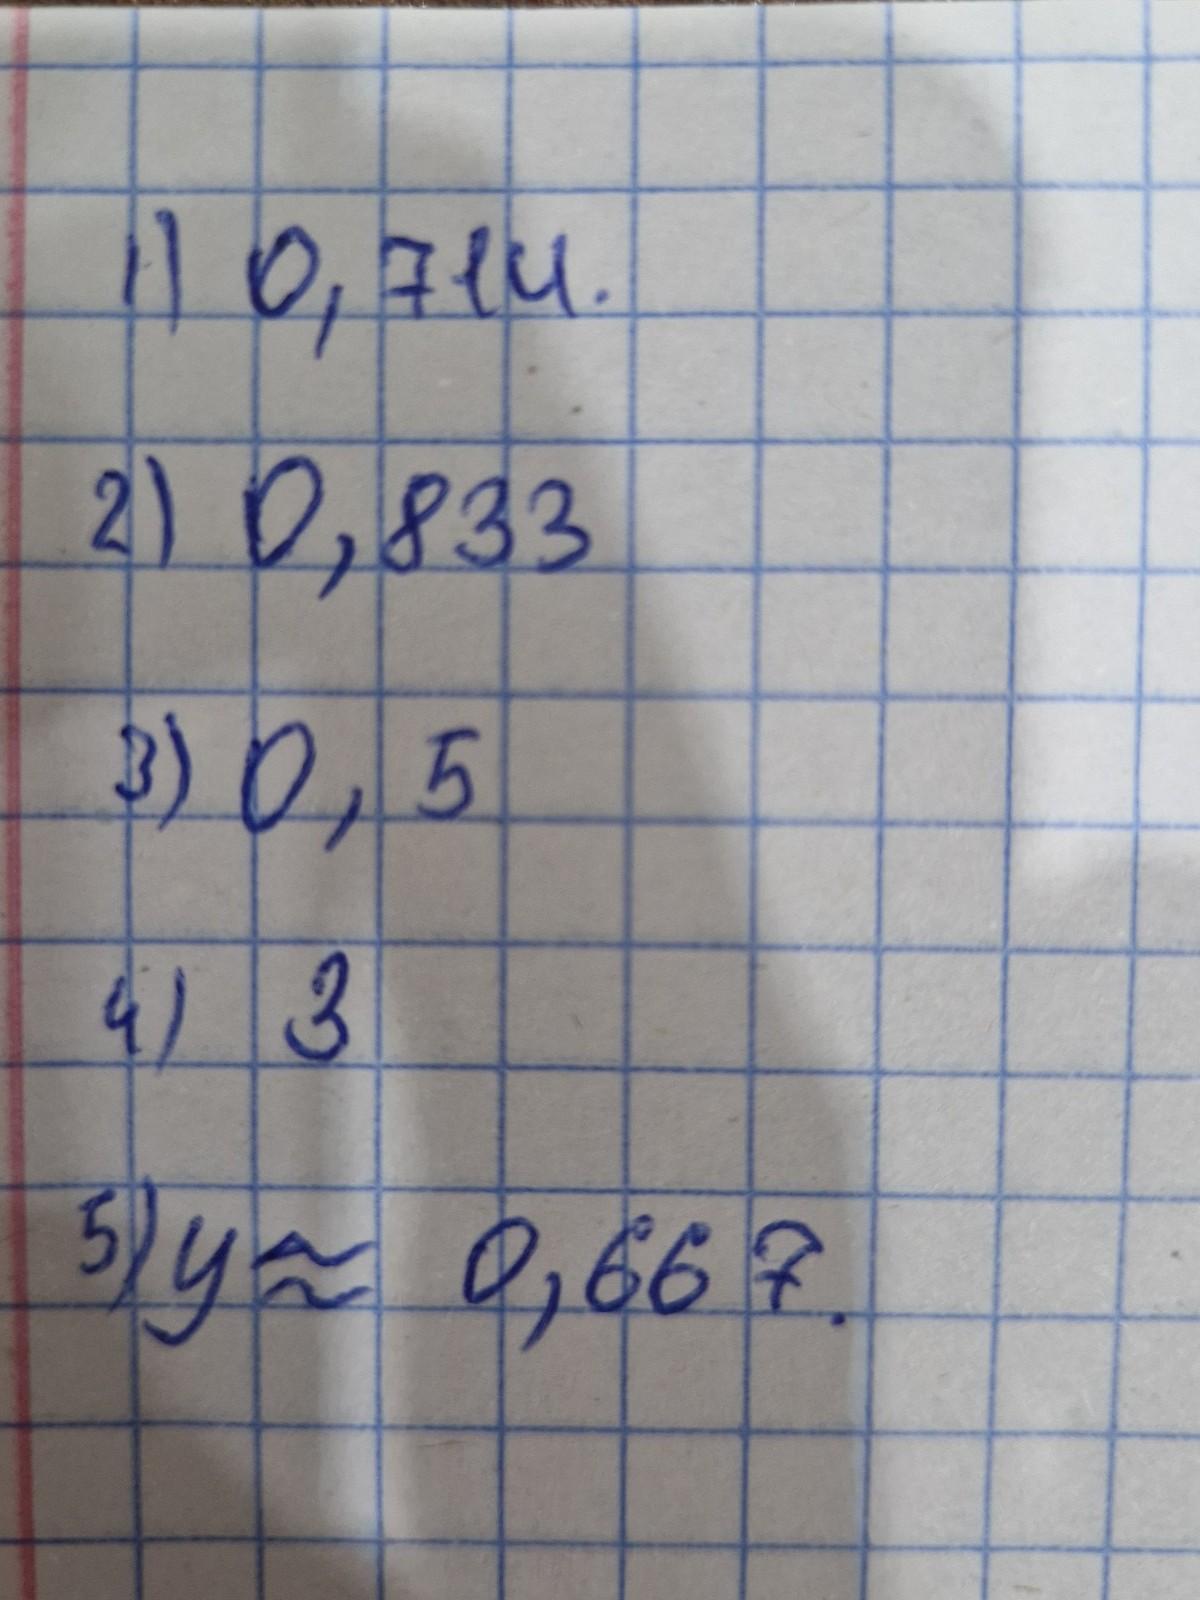 1) 0,714.
2) 0,833
3) 0,5
4) 3
5) y ≈ 0,667.